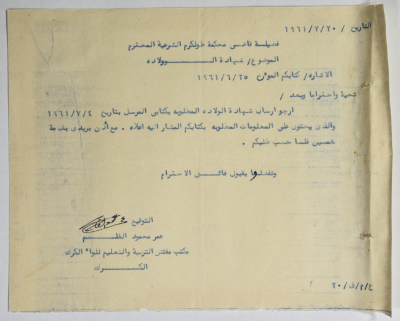 التاريخ / ٢٠ / ٧ / ١٩٦١
فضيلة قاضي محكمة طولكرم الشرعية المحترم
الموضوع / شهادة الـــــولاده
الاشارة / كتابكم المؤرخ ٢٥ / ٦ / ١٩٦١
تحية واحتراما وبعد /
ارجو ارسال شهادة الولاده المطلوبه بكتابي المرسل بتاريخ ٤ / ٧ / ١٩٦١
والذي يحتوي على المعلومات المطلوبه بكتابكم المشار اليه اعلاه . مع اذن بريدي بقيمة
خمسين فلسا حسب طلبكم .
وتفضلوا بقبول فائق الاحترام
التوقيع
عمر محمود
مكتب مفتش التربية والتعليم للواء الكرك
الكــــرك